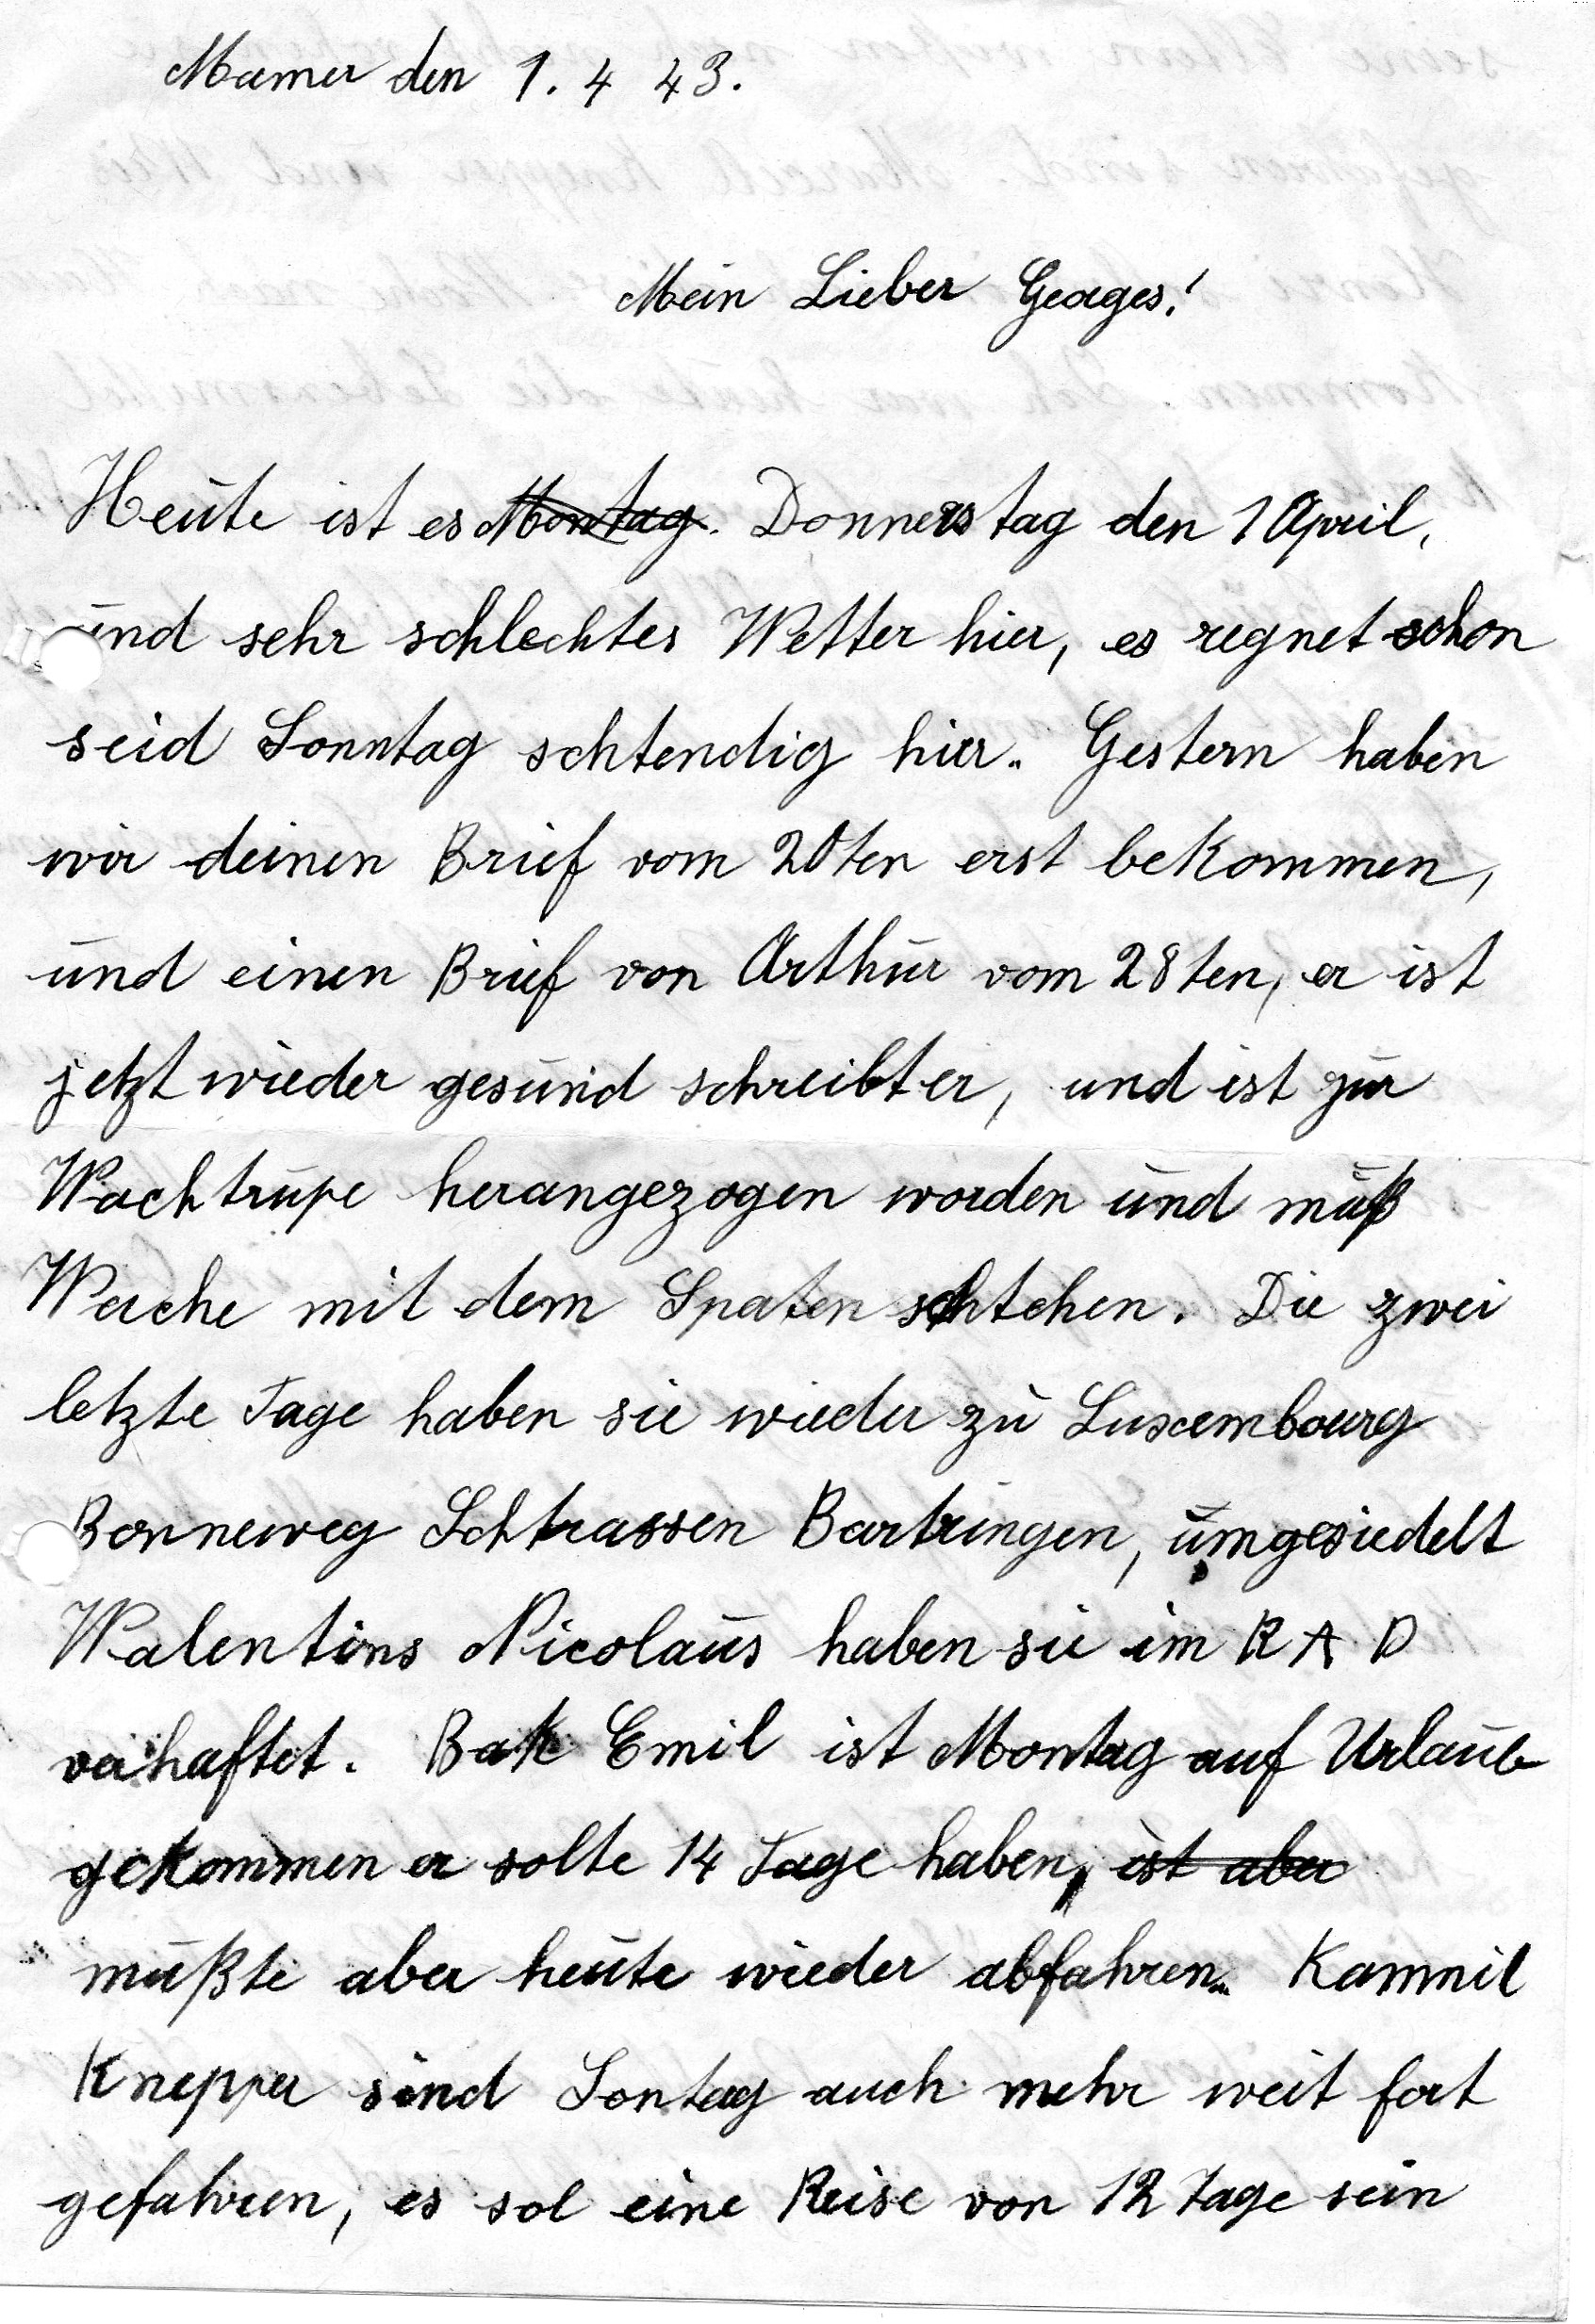 Mamer den 1. 4 43.
Mein Lieber Georges!
Heute ist es Montag. Donnerstag den 1 April,
und sehr schlechtes Wetter hier, es regnet schon
seid Sonntag schtendig hier. Gestern haben
wir deinen Brief vom 20ten erst bekommen,
und einen Brief von Arthur vom 28ten, er ist
jetzt wieder gesund schreibt er, und ist zur
Wachtrupe herangezogen worden und muß
Wache mit dem Spaten schtehen. Die zwei
letzte Tage haben sie wieder zu Luxembourg
Bonneweg Schtrassen Bartringen, umgesiedelt
Walentins Nicolaus haben sie im R A D
verhaftet. Bak Emil ist Montag auf Urlaub
gekommen er solte 14 Tage haben, ist aber
mußte aber heute wieder abfahren. Kammil
Knepper sind Sontag auch mehr weit fort
gefahren, es sol eine Reise von 12 Tage sein